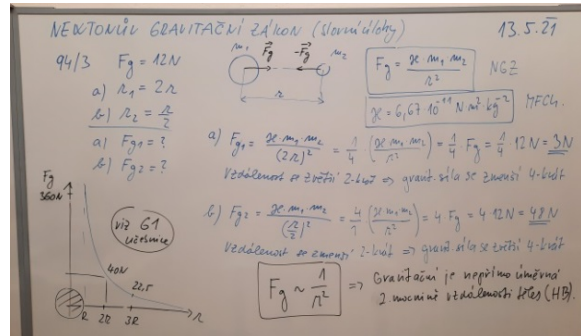 NEWTONŮV GRAVITAČNÍ ZÁKON (slovní úlohy)
13.5.21
94/3 Fg = 12N
a) r₁ = 2r
b) r₂ = r/2
a) Fg₁ = ?
b) Fg₂ = ?
m₁ F⃗g -F⃗g m₂
r
Fg = ϰ · m₁ m₂ / r² NGZ
ϰ = 6,67·10⁻¹¹ N m² kg⁻² MFCh.
a) Fg₁ = ϰ · m₁ · m₂ / (2r)² = 1/4 (ϰ · m₁ m₂ / r²) = 1/4 Fg = 1/4 · 12N = 3N
Vzdálenost se zvětší 2-krát => gravit. síla se zmenší 4-krát
b) Fg₂ = ϰ · m₁ · m₂ / (r/2)² = 4/1 (ϰ · m₁ m₂ / r²) = 4 Fg = 4·12N = 48N
Vzdálenost se zmenší 2-krát => gravit. síla se zvětší 4-krát
Fg ~ 1/r² => Gravitační je nepřímo úměrná
2 mocnině vzdálenosti těles (HB).
Fg
360N
viz G1
učebnice
40N
22,5
R 2R 3R r